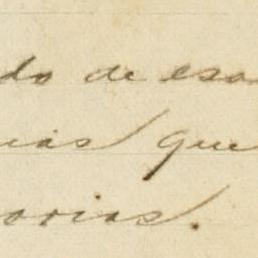 do de esa
uias que
orias.